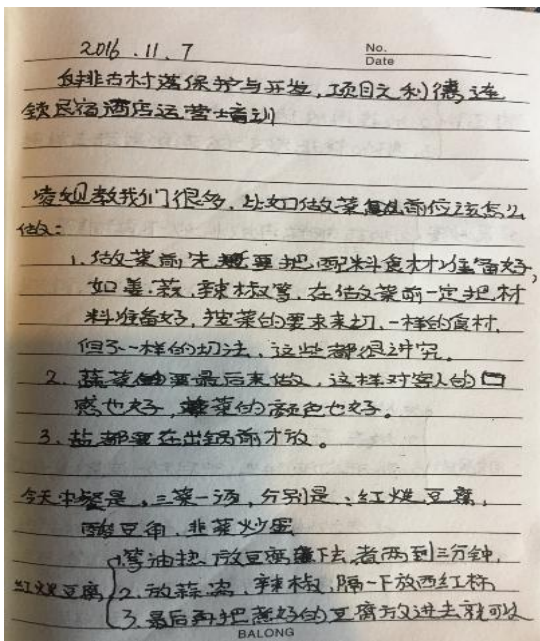 2016.11.7
No.
Date
白排古村落保护与开发,项目之利德连
锁民宿酒店运营培训
凌姐教我们很多,比如做菜前应该怎么
做:
1、做菜前先要把配料食材准备好,
如姜、蒜、辣椒等,在做菜前一定把材
料准备好,按菜的要求来切,一样的食材,
但不一样的切法,这些都很讲究。
2、蔬菜要最后来做,这样对客人的口
感也好,菜的颜色也好。
3、盐都要在出锅前才放。
今天中餐是,三菜一汤,分别是:红烧豆腐,
酸豆角,韭菜炒蛋
红烧豆腐
1.等油热放豆腐下去煮两到三分钟,
2.放蒜、辣椒,隔一下放西红柿
3.最后再把煮好的豆腐放进去就可以
BALONG